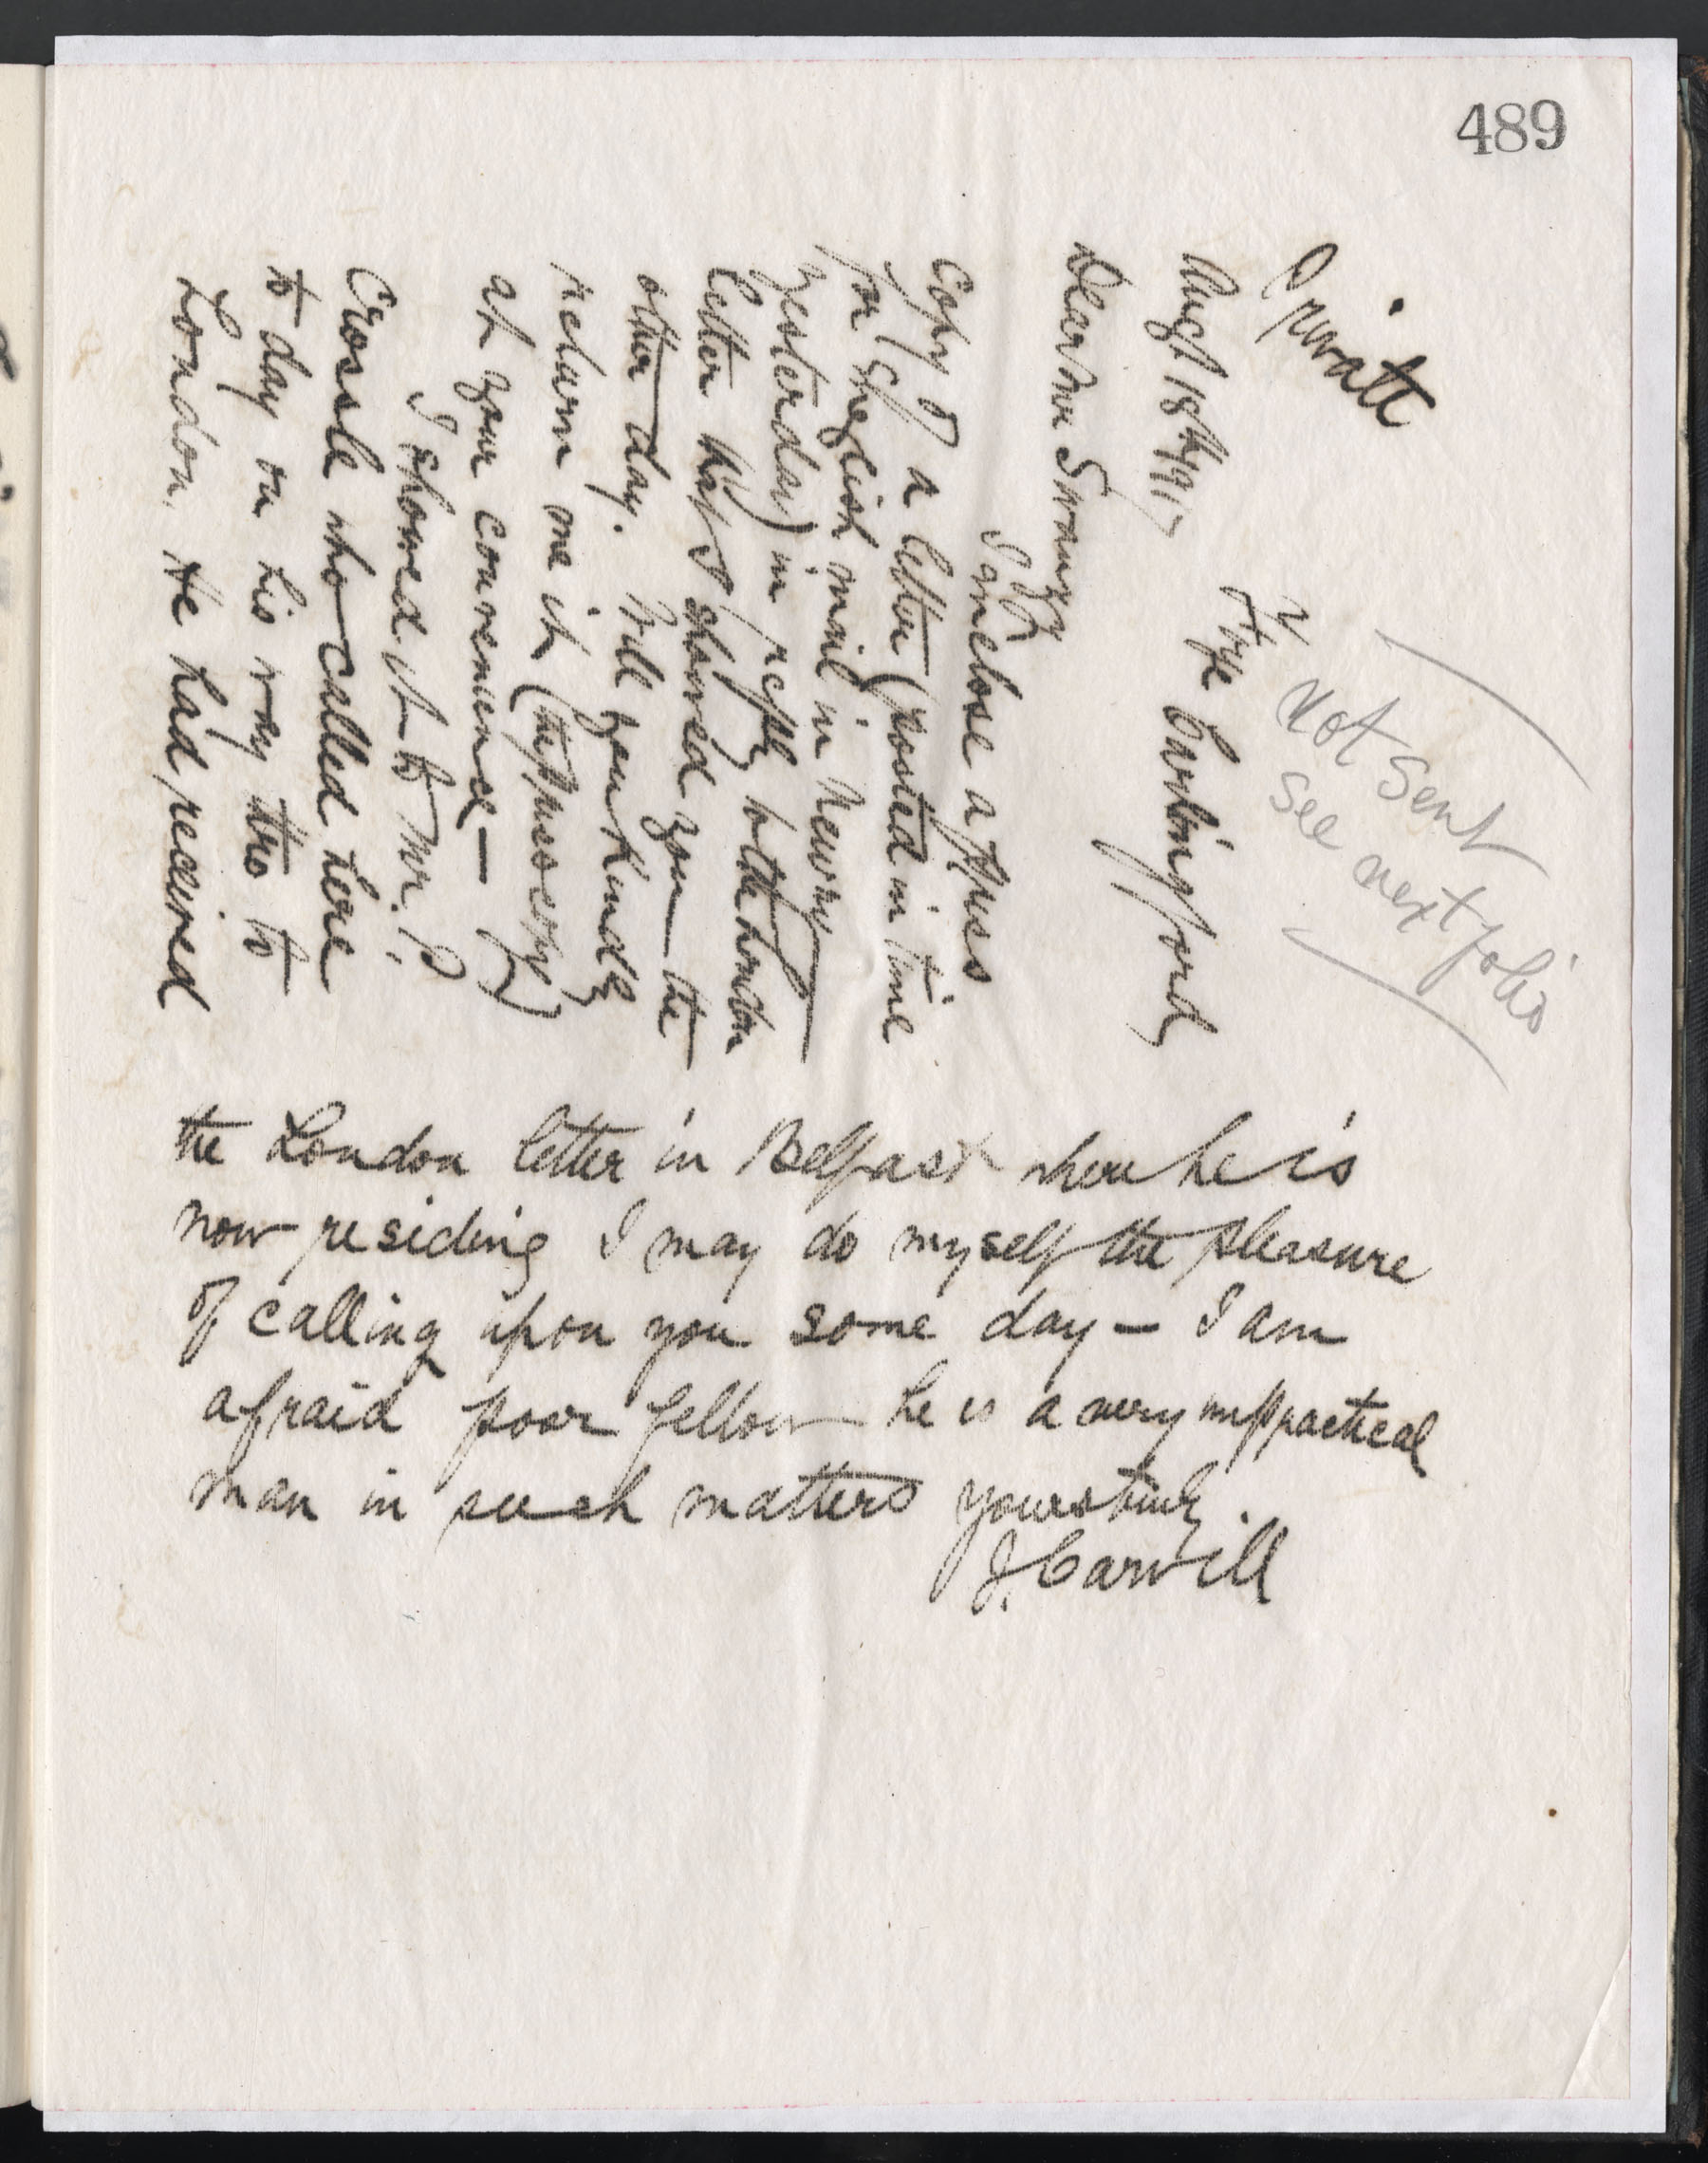 489
Private
Not sent
see next folio
Augt 18th/917
Dear Mr Swanzy
I enclose a press
copy of a letter (posted in time
for English mail in Newry
yesterday) in reply to the London
letter that I showed you the
other day. Will you kindly
return me it (the press copy)
at your convenience —
I showed it to Mr. P
Crossle who called here
to day on his way thro to
London. He had received
the London letter in Belfast where he is
now residing I may do myself the pleasure
of calling upon you some day — I am
afraid poor fellow he is a very unpractical
man in such matters yours truly.
J. Carvill